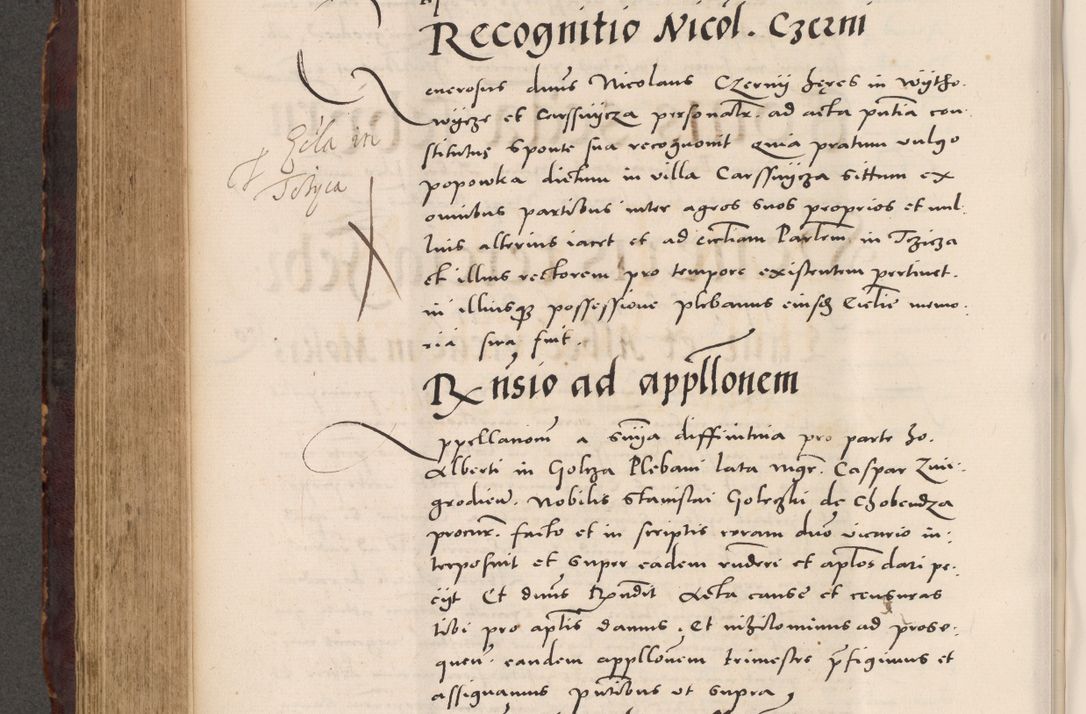 Recognitio Nicol. Czerni
Generosus dnus Nicolaus Czernij heres in Wijtho-
wijcze et Carssnijcza personalr. ad acta pntia con-
stitutus sponte sua recognovit Quia pratum vulgo
popowka dictum in villa Carssnijcza situm ex
omnibus partibus inter agros suos proprios et nul-
lius alterius iacet et ad eccliam Parlem in Tczicza
et illius rectorem pro tempore existentem pertinet.
in illiusq possessione plebanus eiusdem Ecclie memo-
ria sua fuit.
Eccla in
Tczyca
Rnsio ad appllonem
Appellationi a snia diffinitiva pro parte ho.
Alberti in Golcza Plebani lata mgr. Caspar Zwie-
grodien. Nobilis Stanislai Golczski de Chobendza
procur. facto et in scriptis coram dno vicario in-
terposuit et super eadem rndere et aplos dari pe-
cijt Et dnus Rpondit Acta cause et censuras
tibi pro aplis damus. Et nihilominus ad prose-
quen. eandem appllonem trimestre pfigimus et
assignamus pntibus ut supra,